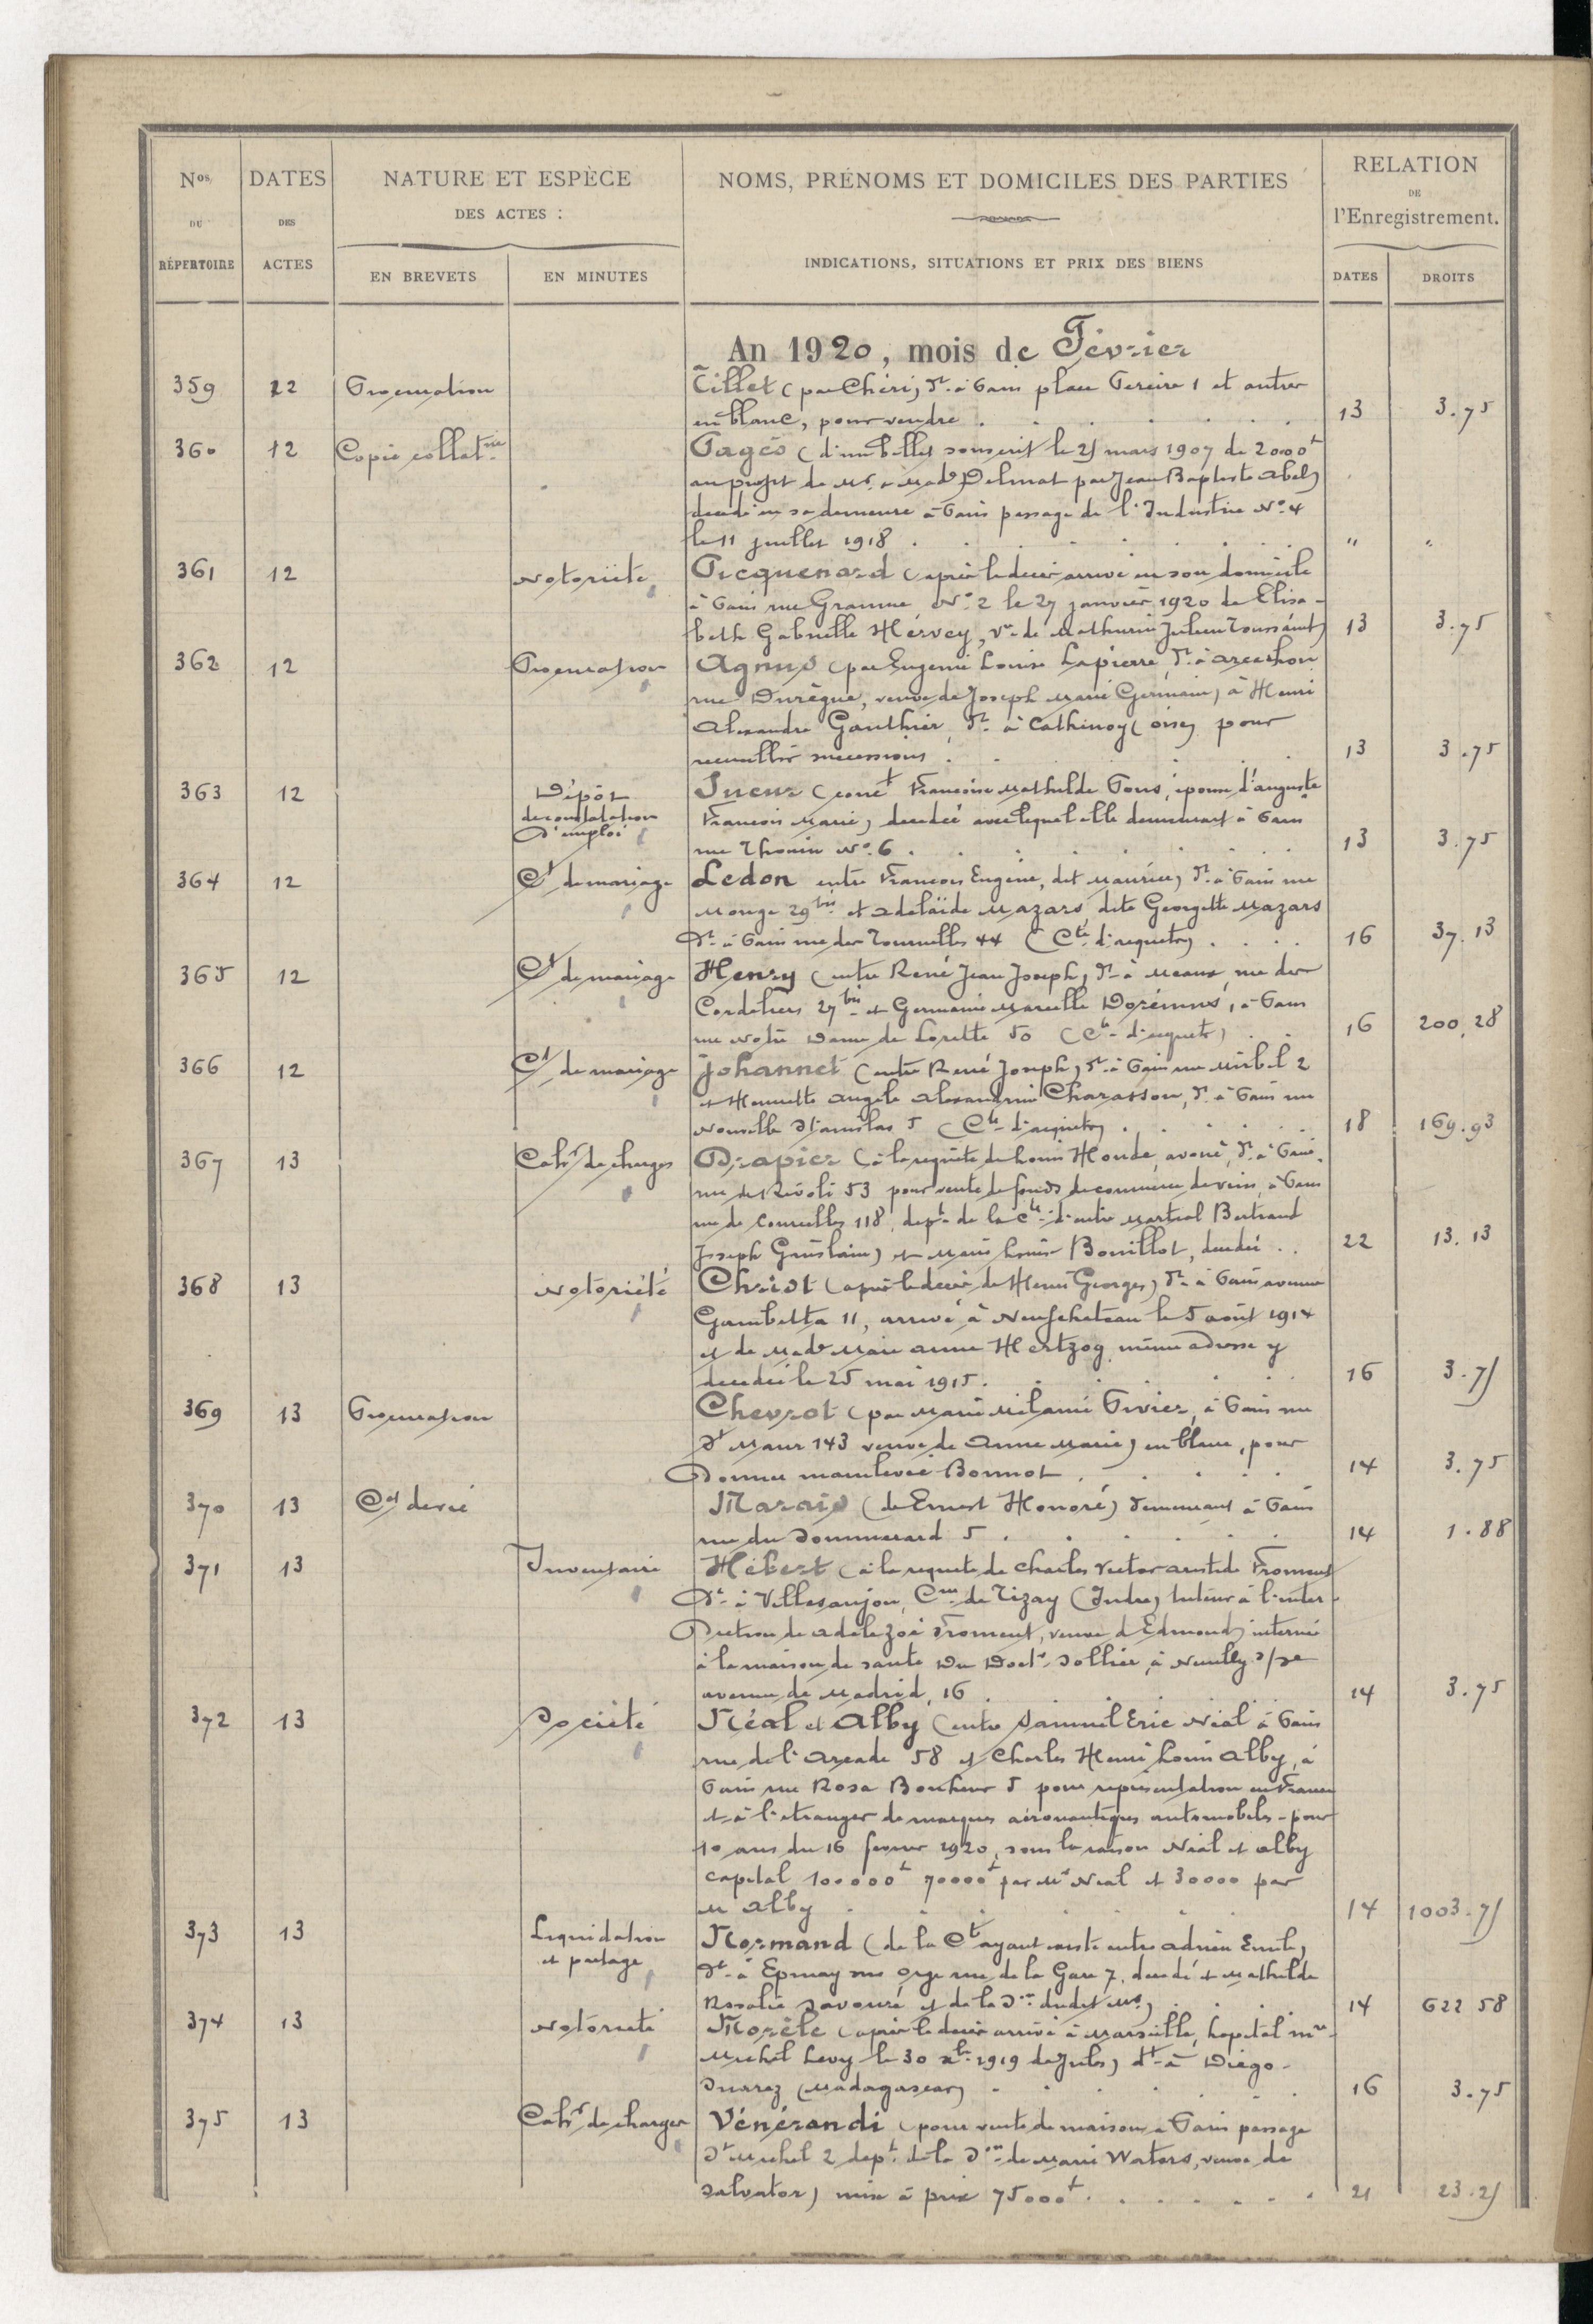 Nos DU RÉPERTOIRE
DATES DES ACTES
NATURE ET ESPÈCE DES ACTES :
EN BREVETS
EN MINUTES
NOMS, PRÉNOMS ET DOMICILES DES PARTIES
INDICATIONS, SITUATIONS ET PRIX DES BIENS
RELATION DE l'Enregistrement.
DATES
DROITS
An 1920, mois de Février
359 12 Procuration Tillet (par Chéri) dt à Paris place Pereire 1 et autres
en blanc, pour vendre 13 3.75
360 12 Copie collatnée Pagès (d'un billet souscrit le 25 mars 1907 de 20000f
au profit de Mr et Made Delmat par Jean Baptiste Abel)
décédé en sa demeure à Paris passage de l'Industrie No 4
le 11 juillet 1918 " "
361 12 Notoriété Picquenard (après le décès arrivé en son domicile
à Paris rue Gramme, No 2 le 27 janvier 1920 de Elisa-
beth Gabrielle Hervey, ve de Mathurin Julien Toussaint) 13 3.75
362 12 Procuration Agnus (par Eugénie Louise Lapierre, dt à Arcachon
rue Durègne, veuve de Joseph Marie Germain) à Henri
Alexandre Gauthier, dt à Cathenoy (oise) pour
recueillir successions 13 3.75
363 12 Dépôt de constatation d'emploi Sueur (conct Françoise Mathilde Pons, épouse d'Auguste
François Marie) décédée avec lequel elle demeurait à Paris
rue Thouin No 6 13 3.75
364 12 Ct de mariage Ledon entre François Eugène, dit Maurice) dt à Paris rue
Monge 29 bis et Adelaïde Mazars, dite Georgette Mazars
dt à Paris rue des Tournelles 44 (Cté d'acquêts) 16 37.13
365 12 Ct de mariage Henry (entre René Jean Joseph) dt à Meaux, rue des
Cordeliers 27 bis et Germaine Marcelle Dorémus, à Paris
rue Notre Dame de Lorette 50 (Cté d'acquêts) 16 200.28
366 12 Ct de mariage Johannet (entre René Joseph) dt à Paris rue Mirbel 2
et Henriette Angèle Alexandrine Charasson, dt à Paris rue
Nouvelle Stanislas 5 (Cté d'acquêts) 18 169.93
367 13 Cahr de charges Drapier (à la requête de Louis Honde, avoué, dt à Paris
rue de Rivoli 53 pour vente de fonds de commerce de vins, à Paris
rue de Courcelles 118, dépt de la Cté d'entre Martial Bertrand
Joseph Guislain) et Marie Louise Bouillot, décédée 22 13.13
368 13 Notoriété Christ (après le décès de Henri Georges) dt à Paris avenue
Gambetta 11, arrivé à Neufchateau le 5 août 1914
et de Made Marie Anne Hertzog même adresse y
décédée le 25 mai 1915 16 3.75
369 13 Procuration Chevrot (par Marie Mélanie Pivier, à Paris rue
St Maur 143 veuve de Anne Marie) en blanc, pour
donner mainlevée Bonnot 14 3.75
370 13 Cat de vie Marais (de Ernest Honoré) demeurant à Paris
rue du Sommerard 5 14 1.88
371 13 Inventaire Hébert (à la requête de Charles Victor Aristide Froment
dt à Villesanjou, Cne de Tizay (Indre) tuteur à l'inter-
diction de Adèle Zoé Froment, veuve d'Edmond) internée
à la maison de santé du Doctr Sollier, à Neuilly s/se
avenue de Madrid, 16 14 3.75
372 13 Société Néal et Alby (entre Samuel Eric Néal à Paris
rue de l'Arcade 58 et Charles Henri Louis Alby, à
Paris rue Rosa Bonheur 5 pour représentation en France
et à l'étranger de marques aéronautiques automobiles - pour
10 ans du 16 février 1920, sous la raison Néal et Alby
capital 100000f 70000f par Mr Néal et 30000 par
M Alby 14 1003.75
373 13 Liquidation et partage Normand (de la Cté ayant existé entre Adrien Emile)
dt à Epinay sur Orge rue de la Gare 7, décédé et Mathilde
Rosalie Savouré et de la son dudit Mr) 14 622 58
374 13 Notoriété Morèle (après le décès arrivé à Marseille, hopital mre
Michel Levy le 30 xbre 1919 de Jules) dt à Diégo-
Suarez (Madagascar) 16 3.75
375 13 Cahr de charges Vénérandi (pour vente de maison à Paris passage
St Michel 2 dépt de la son de Marie Waters, veuve de
Salvator) mise à prix 75000f 21 23.25